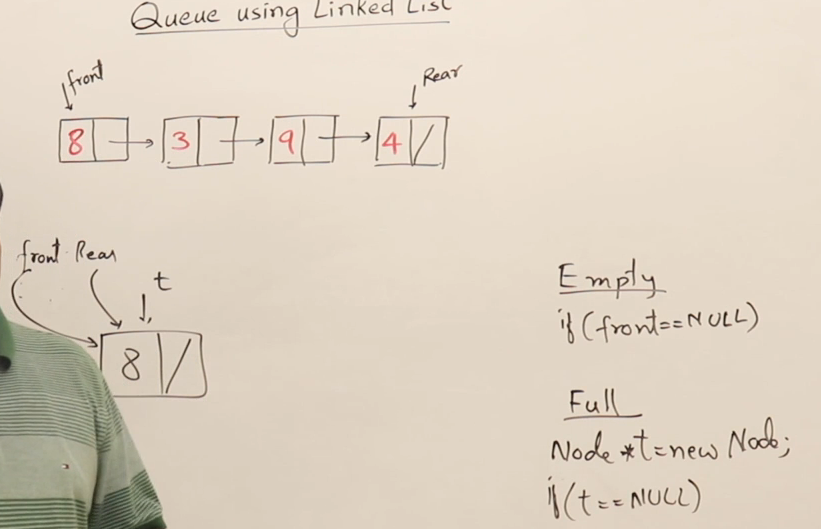 Queue using Linked List
front
Rear
8 3 9 4
front Rear
t
8
Empty
if(front==NULL)
Full
Node *t=new Node;
if(t==NULL)